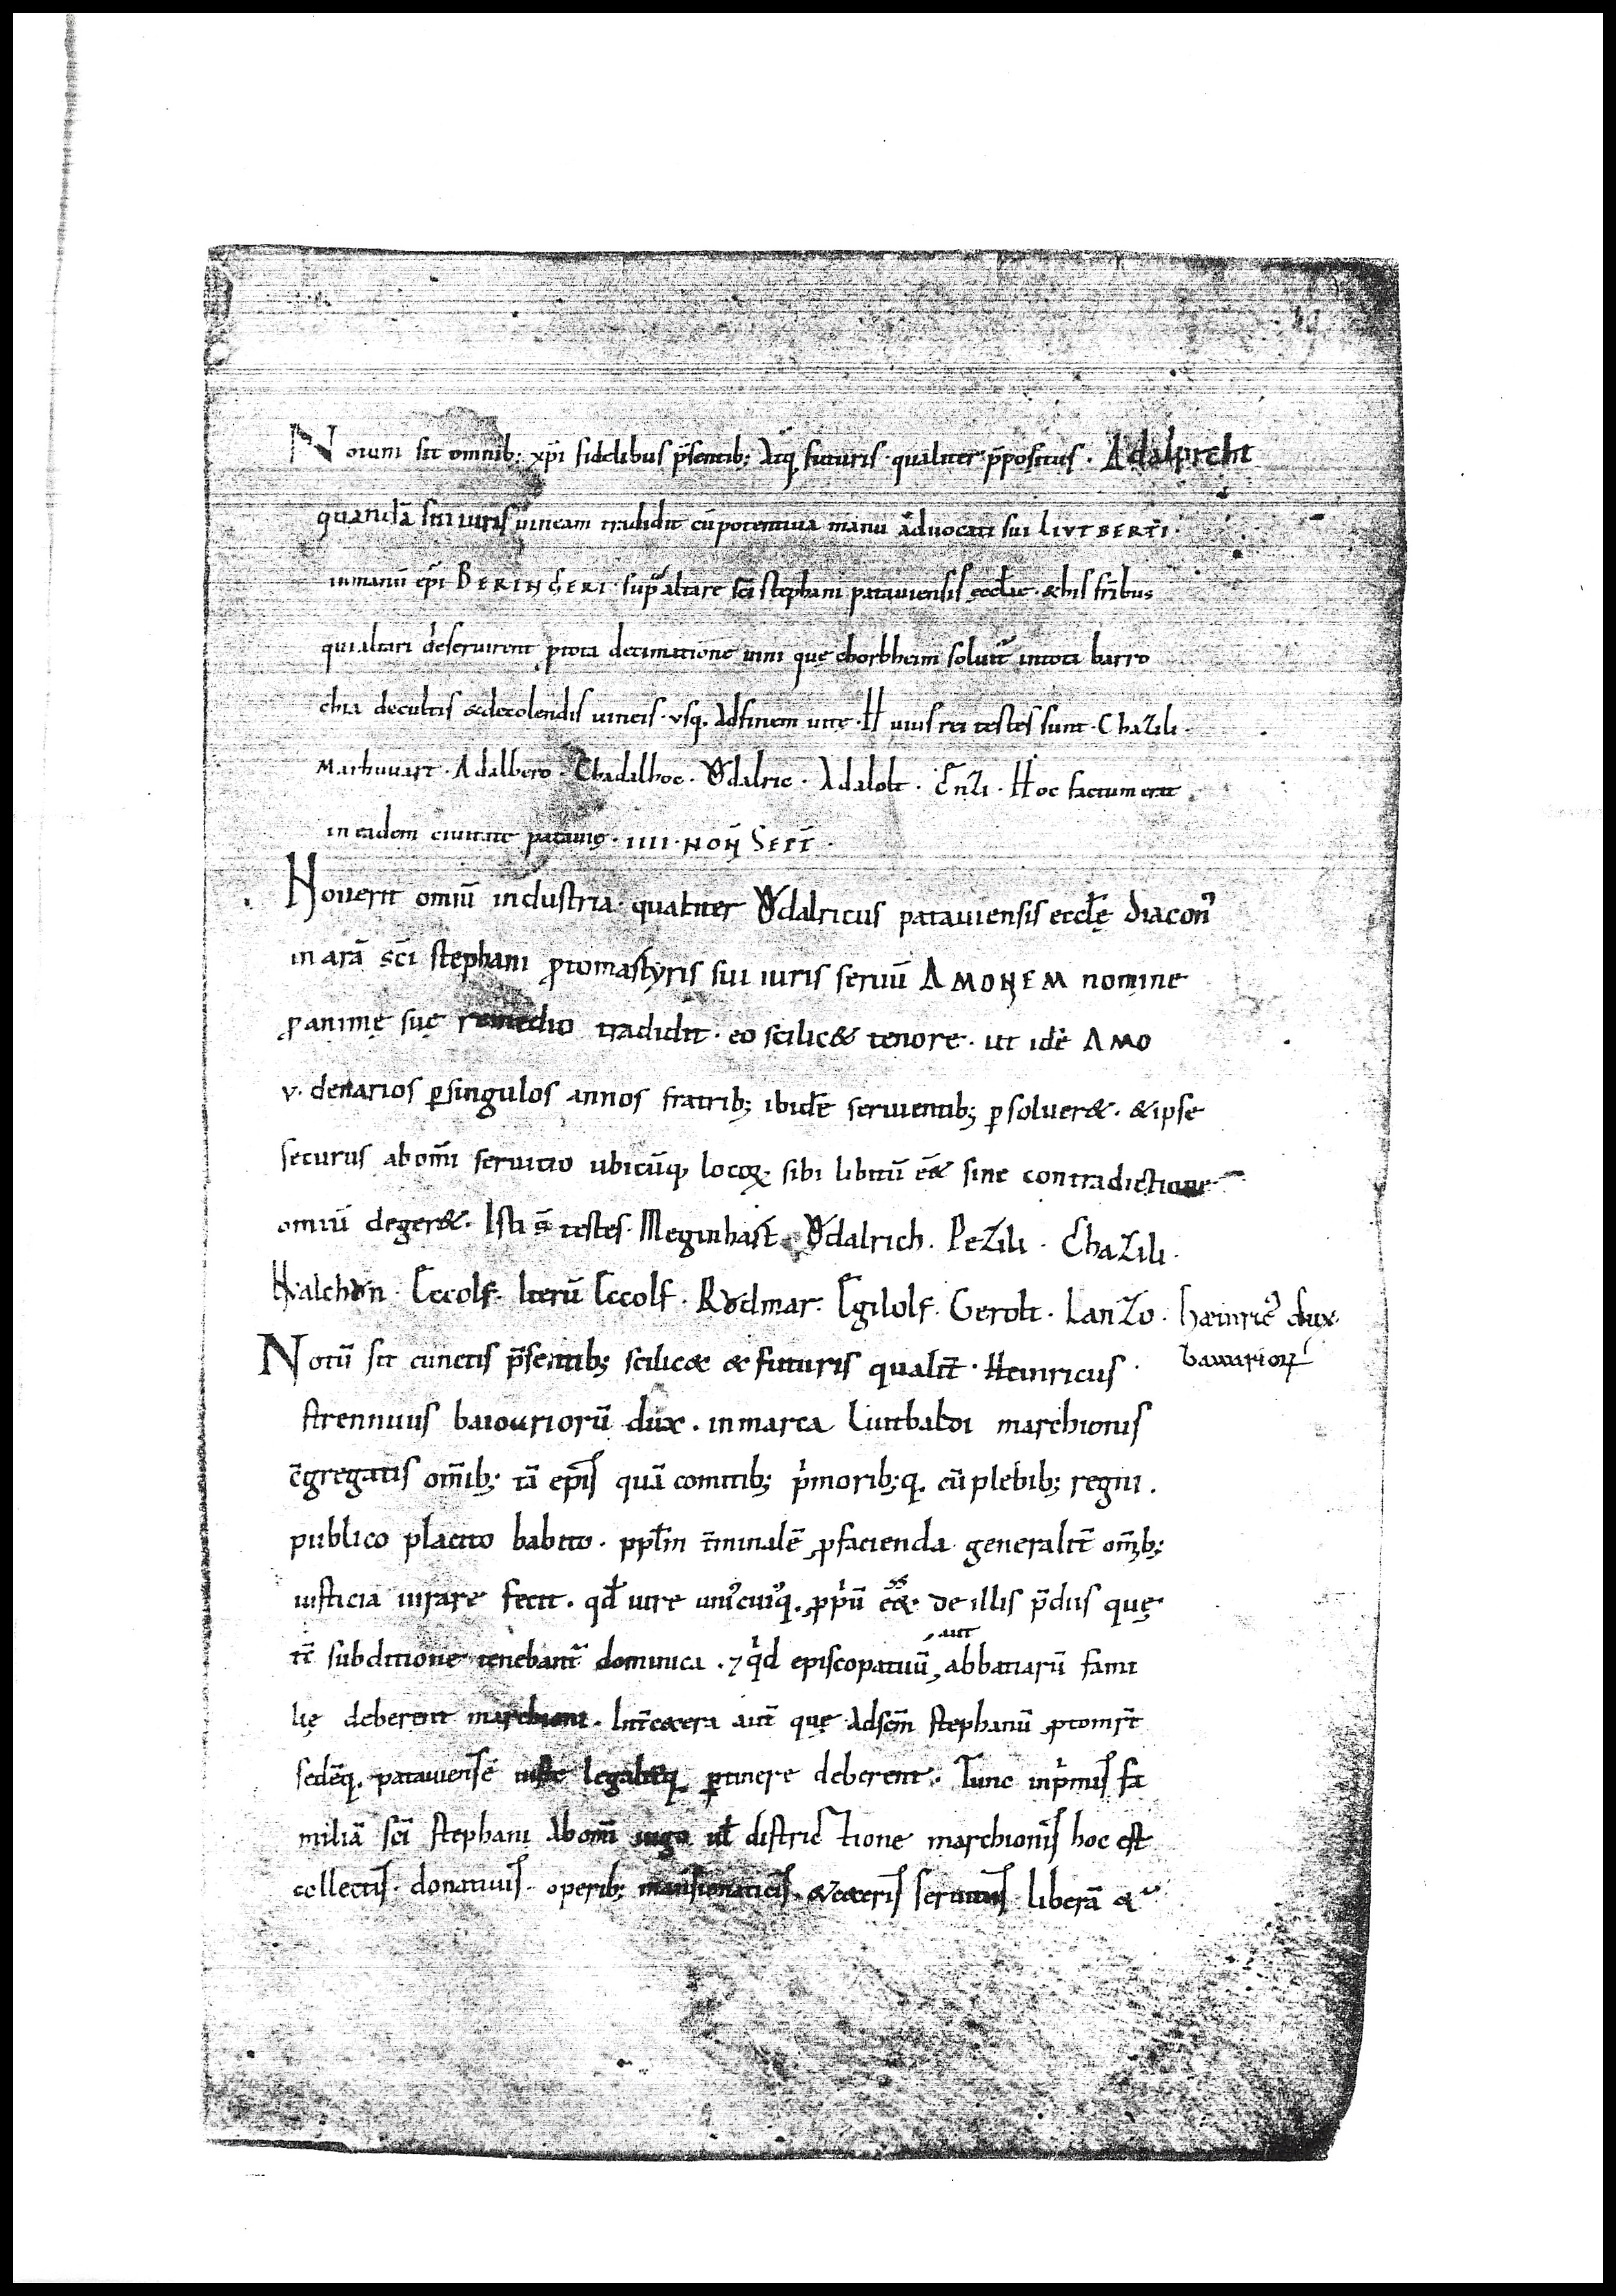 Notum sit omnib; xp̄i fidelibus p̄sentib; Atq; futuris · qualiter p̄positus · Adalpreht
quandā sui iuris uineam tradidit cū potentiua manu aduocati sui LIVTBERTI ·
in manū ep̄i BERINGERI · sup altare sc̄i stephani patauiensis ęccłie · & his fr̄ibus
qui altari deseruirent p tota decimatione uini quę chorbheim soluit̄ in tota barro
chia de cultis & de colendis uineis · vsq; Ad finem uitę · Huius rei testes sunt · Chazili ·
Marhuuart · Adalbero · Chadalhoc · Ödalric · Adalolt · Enzi · Hoc factum erat
in eadem ciuitate patauię · IIII · NON̄ SEPT̄ ·
Nouerit omiū industria · qualiter Ǒdalricus patauiensis eccłę diacon᾽
in arā sc̄i stephani ꝓtomartyris sui iuris seruū AMONEM nomine
ꝓ animę suę remedio tradidit · eo scilic& tenore · ut idē AMO
v · denarios ꝑ singulos annos fratrib; ibidē seruientib; ꝑsoluer& · & ipse
securus ab om̄i seruitio ubicūq; locoꝝ · sibi libitū eēt sine contradictione
omiū deger& · Isti s̄ testes · Meginhart · Ǒdalrich · Pezili · Chazili ·
Walchǒn · Eccolf · Iterū Eccolf · Rǒdmar · Egilolf · Gerolt · Lanzo · heinric᾽ dux
bawarioꝝ
Notū sit cunctis p̄sentib; scilicæ & futuris qualit̄ · Heinricus ·
strennuus baiouuriorū dux · in marca Liutbaldi marchionis
c̄gregatis om̄ib; tā ep̄is quā comitib; p̓morib;q; cū plebib; regni ·
publico placito habito · ppłm t̄minalē ꝓ facienda generalit̄ om̄ib;
iusticia iurare fecit · qđ iure uni᾽cui᾽q; ꝓp̓ū eēt · de illis p̄diis quę
tc̄ subditione tenebant̄ dominica · ⁊ q̓d episcopatuū, aut abbatiarū fami
lię deberent marchioni · Int̄ cetera aut̄ quę Ad sc̄m stephanū ꝓtomr̄t
sedēq; patauiensē iuste legalit̄q; ꝑtinere deberent · Tunc in p̓mis fa
miliā sc̄i stephani Ab om̄i iugo uł districtione marchionis hoc est
collectis · donatiuis · operib; mansionaticis · & ceteris seruitiis liberā &